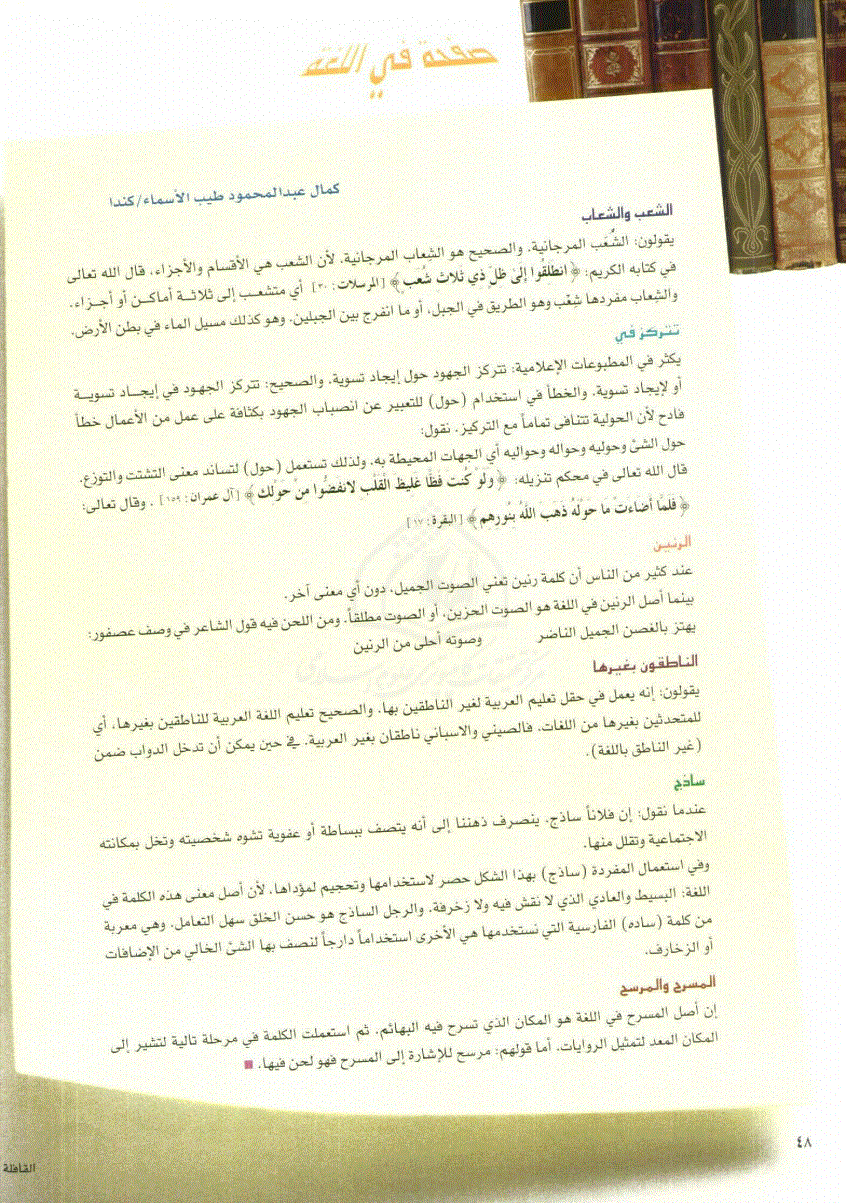 صفحة في اللغة
كمال عبدالمحمود طيب الأسماء/كندا
الشعب والشعاب
يقولون: الشُّعَب المرجانية، والصحيح هو الشِعاب المرجانية، لأن الشعب هي الأقسام والأجزاء، قال الله تعالى
في كتابه الكريم: ﴿ انطَلِقُوا إِلَىٰ ظِلٍّ ذِي ثَلاثِ شُعَبٍ ﴾ [المرسلات: ٣٠] أي متشعب إلى ثلاثـة أماكـن أو أجـزاء.
والشِعاب مفردها شِعْب وهو الطريق في الجبل، أو ما انفرج بين الجبلين. وهو كذلك مسيل الماء في بطن الأرض.
تتركز في
يكثر في المطبوعات الإعلامية: تتركز الجهود حول إيجاد تسوية. والصحيح: تتركز الجهـود في إيجـاد تسويـة
أو لإيجاد تسوية. والخطأ في استخدام (حول) للتعبير عن انصباب الجهود بكثافة على عمل من الأعمال خطأ
فادح لأن الحولية تتنافى تماماً مع التركيز. نقول:
حول الشئ وحوليه وحواله وحواليه أي الجهات المحيطة به. ولذلك تستعمل (حول) لتساند معنى التشتت والتوزع.
قال الله تعالى في محكم تنزيله: ﴿ وَلَوْ كُنتَ فَظًّا غَلِيظَ الْقَلْبِ لانفَضُّوا مِنْ حَوْلِكَ ﴾ [آل عمران: ١٥٩] . وقال تعالى:
﴿ فَلَمَّا أَضَاءَتْ مَا حَوْلَهُ ذَهَبَ اللَّهُ بِنُورِهِمْ ﴾ [البقرة: ١٧]
الرنين
عند كثير من الناس أن كلمة رنين تعني الصوت الجميل، دون أي معنى آخر.
بينما أصل الرنين في اللغة هو الصوت الحزين، أو الصوت مطلقاً. ومن اللحن فيه قول الشاعر في وصف عصفور:
يهتز بالغصن الجميل الناضر وصوته أحلى من الرنين
الناطقون بغيرها
يقولون: إنه يعمل في حقل تعليم العربية لغير الناطقين بها. والصحيح تعليم اللغة العربية للناطقين بغيرها، أي
للمتحدثين بغيرها من اللغات. فالصيني والاسباني ناطقان بغير العربية. في حين يمكن أن تدخل الدواب ضمن
(غير الناطق باللغة).
ساذج
عندما نقول: إن فلاناً ساذج، ينصرف ذهننا إلى أنه يتصف ببساطة أو عفوية تشوه شخصيته وتخل بمكانته
الاجتماعية وتقلل منها.
وفي استعمال المفردة (ساذج) بهذا الشكل حصر لاستخدامها وتحجيم لمؤداها، لأن أصل معنى هذه الكلمة في
اللغة: البسيط والعادي الذي لا نقش فيه ولا زخرفة. والرجل الساذج هو حسن الخلق سهل التعامل. وهي معربة
من كلمة (ساده) الفارسية التي نستخدمها هي الأخرى استخداماً دارجاً لنصف بها الشئ الخالي من الإضافات
أو الزخارف.
المسرح والمرسح
إن أصل المسرح في اللغة هو المكان الذي تسرح فيه البهائم. ثم استعملت الكلمة في مرحلة تالية لتشير إلى
المكان المعد لتمثيل الروايات. أما قولهم: مرسح للإشارة إلى المسرح فهو لحن فيها.
٤٨
القافلة